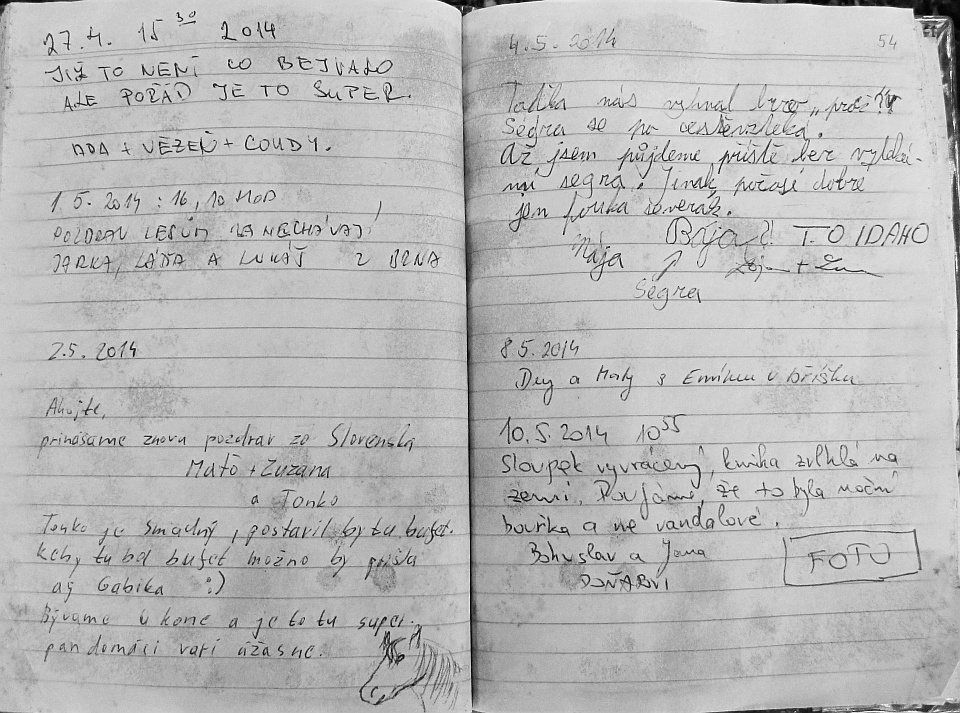 27.4. 15 30 2014
JIŽ TO NENÍ CO BEJVALO
ALE POŘÁD JE TO SUPER.
ADA + VĚZEŇ + COUDY.
1.5. 2014 : 16,10 HOD
POZDRAV LESŮM ZANECHÁVAJÍ
JARKA, LÁĎA A LUKÁŠ Z BRNA
2.5. 2014
Ahojte,
prinášame znova pozdrav zo Slovenska
Maťo + Zuzana
a Tonko
Tonko je smädný, postavil by tu bufet.
Keby tu bol bufet možno by prišla
aj Gabika :)
Bývame u kone a je to tu super.
pan domáci varí úžasne.
4.5. 2014
54
Taťka nás vyhnal
Ségra se po cestě vzteká.
Až sem půjdeme příště bez vytekle-
mí segra. Jinak počasí dobré
jen fouká severák.
Mája
Bája
T.O IDAHO
Ségra
8.5. 2014
a s v bříšku
10.5. 2014 10 55
Sloupek vyvrácený, kniha zvlhlá na
zemi. Doufáme, že to byla noční
bouřka a ne vandalové.
Bohuslav a Jana
FOTO